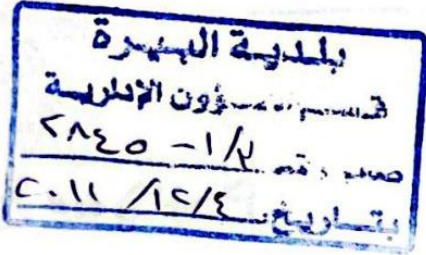 بلدية البيرة
قسم الشؤون الإدارية
صادر رقم ٢/١ - ٢٨٤٥
بتاريخ ٢٠١١/١٢/٤